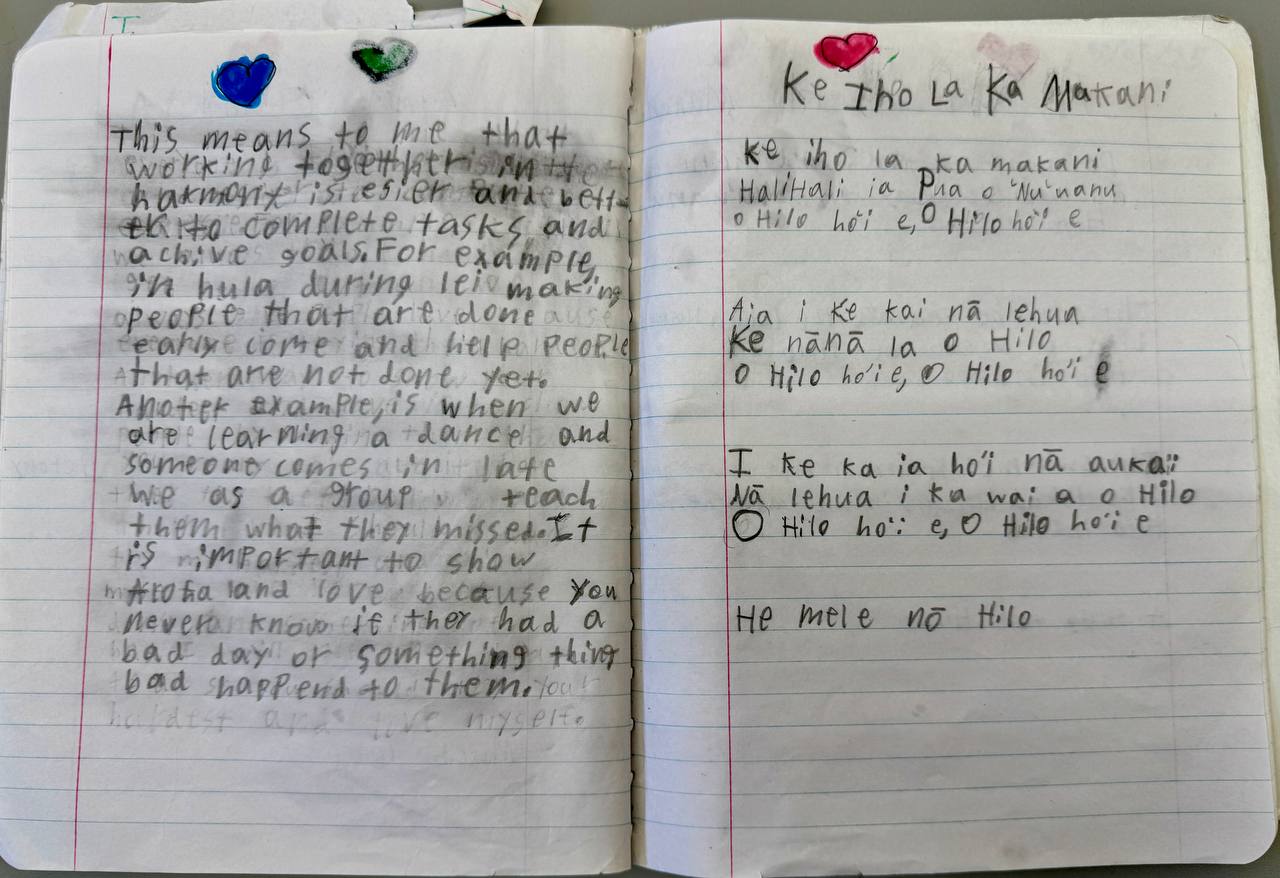 This means to me that
working together in
harmony is esier and bett-
er to complete tasks and
achive goals. For example,
in hula during lei making
people that are done
early come and help people
that are not done yet.
Another example, is when we
are learning a dance and
someone comes in late
we as a group teach
them what they missed. It
is important to show
Aloha and love because you
never know if they had a
bad day or something thing
bad happend to them.
love myself.
Ke Iho La Ka Makani
ke iho la ka makani
HaliHali ia Pua o 'Nu'uanu
o Hilo ho'i e, O Hilo ho'i e
Aia i ke kai nā lehua
Ke nānā la o Hilo
O Hilo ho'i e, O Hilo ho'i e
I ke ka ia ho'i nā aukai
Nā lehua i ka wai a o Hilo
O Hilo ho'i e, O Hilo ho'i e
He mele nō Hilo